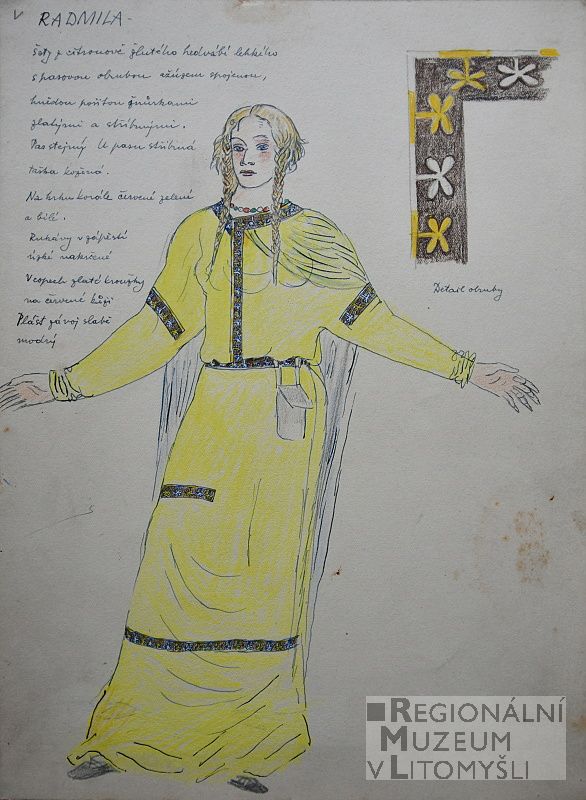 V RADMILA-
Šaty z citronově žlutého hedvábí lehkého
s pasovou obrubou ažúrem spojenou,
hnědou pošitou šňůrkami
zlatými a stříbrnými.
Pas stejný U pasu stříbrná
taška kožená.
Na krku korále červené zelené
a bílé.
Rukávy v zápěstí
úzké nakrčené
V copech zlaté kroužky
na červené kůži
Plášť závoj slabě
modrý
Detail obruby
REGIONÁLNÍ
MUZEUM
V LITOMYŠLI